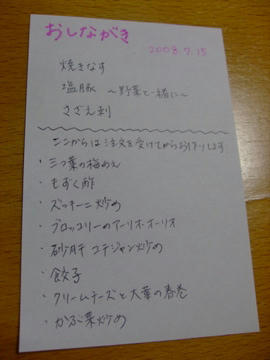 おしながき
2008.9.15
焼きなす
塩豚 〜野菜と一緒に〜
さざえ刺
ここからは注文を受けてからお作りします
・三つ葉の梅あえ
・もずく酢
・ズッキーニ炒め
・ブロッコリーのアーリオ・オーリオ
・砂肝 コチジャン炒め
・餃子
・クリームチーズと大葉の春巻
・かぶ菜炒め